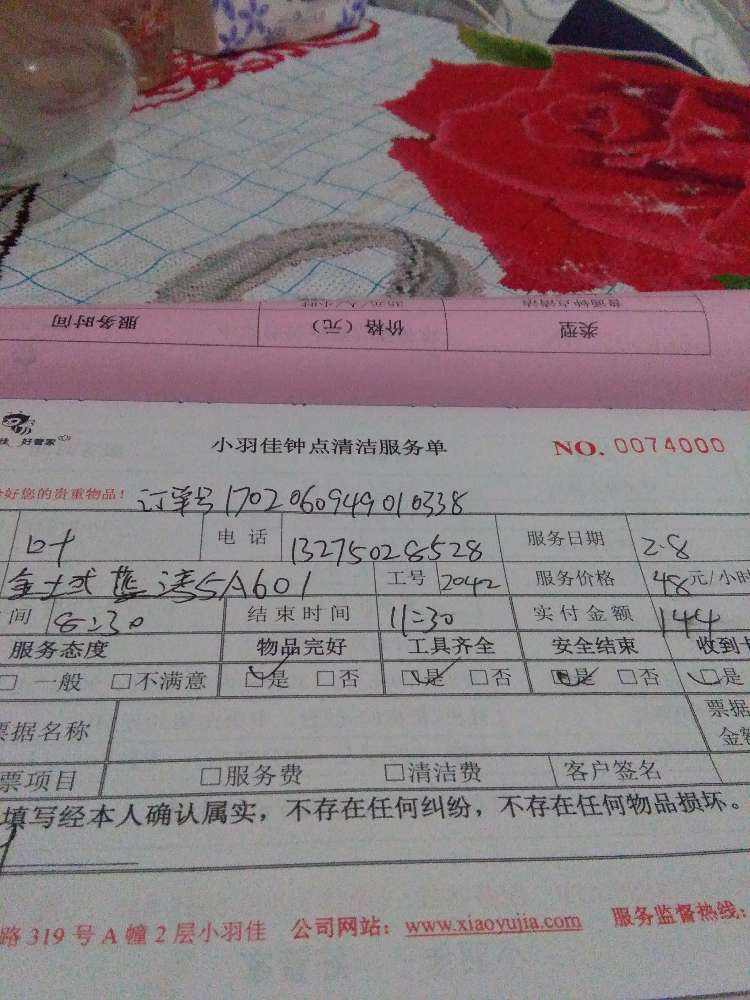 普通钟点清洁 30元/人/小时
类型 价格（元） 服务时间
佳 好管家
小羽佳钟点清洁服务单 NO. 0074000
好您的贵重物品！ 订单号170206094901 0338
叶 电话 13275028528 服务日期 2.8
湾5A601 工号 2042 服务价格 48元/小时
间 8:30 结束时间 11:30 实付金额 144
服务态度 物品完好 工具齐全 安全结束 收到
□ 一般 □不满意 □是 □否 □是 □否 □是 □否 □是
票据名称 票据
金额
票项目 □服务费 □清洁费 客户签名
填写经本人确认属实，不存在任何纠纷，不存在任何物品损坏。
路 319 号 A 幢 2 层小羽佳 公司网站：www.xiaoyujia.com 服务监督热线：